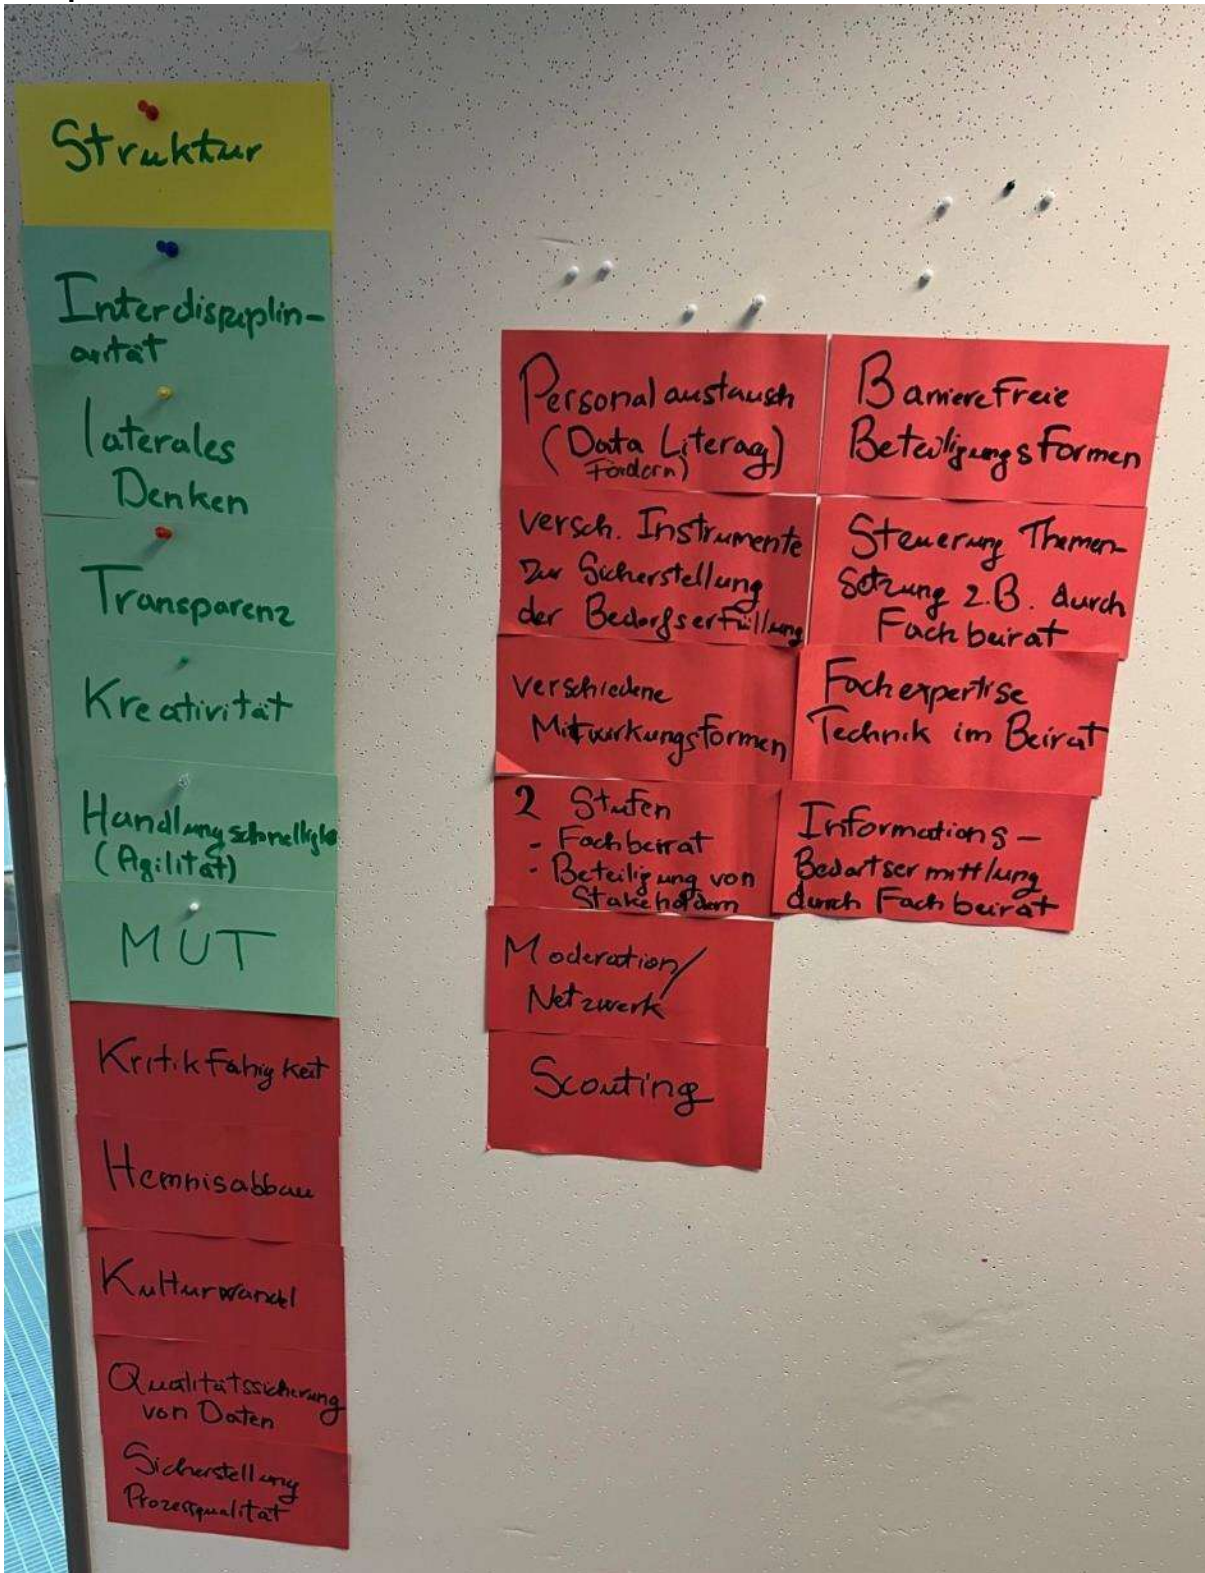 Struktur
Interdisziplin-
arität
laterales
Denken
Transparenz
Kreativität
Handlungsschnelligk
(Agilität)
MUT
Kritikfähigkeit
Hemnisabbau
Kulturwandel
Qualitätssicherung
von Daten
Sicherstellung
Prozessqualität
Personalaustausch
(Data Literacy)
fördern)
versch. Instrumente
zur Sicherstellung
der Bedarfserfüllung
verschiedene
Mitwirkungsformen
2 Stufen
- Fachbeirat
- Beteiligung von
Stakeholdern
Moderation/
Netzwerk
Scouting
Barrierefreie
Beteiligungsformen
Steuerung Themen-
setzung z.B. durch
Fachbeirat
Fachexpertise
Technik im Beirat
Informations-
Bedarfsermittlung
durch Fachbeirat